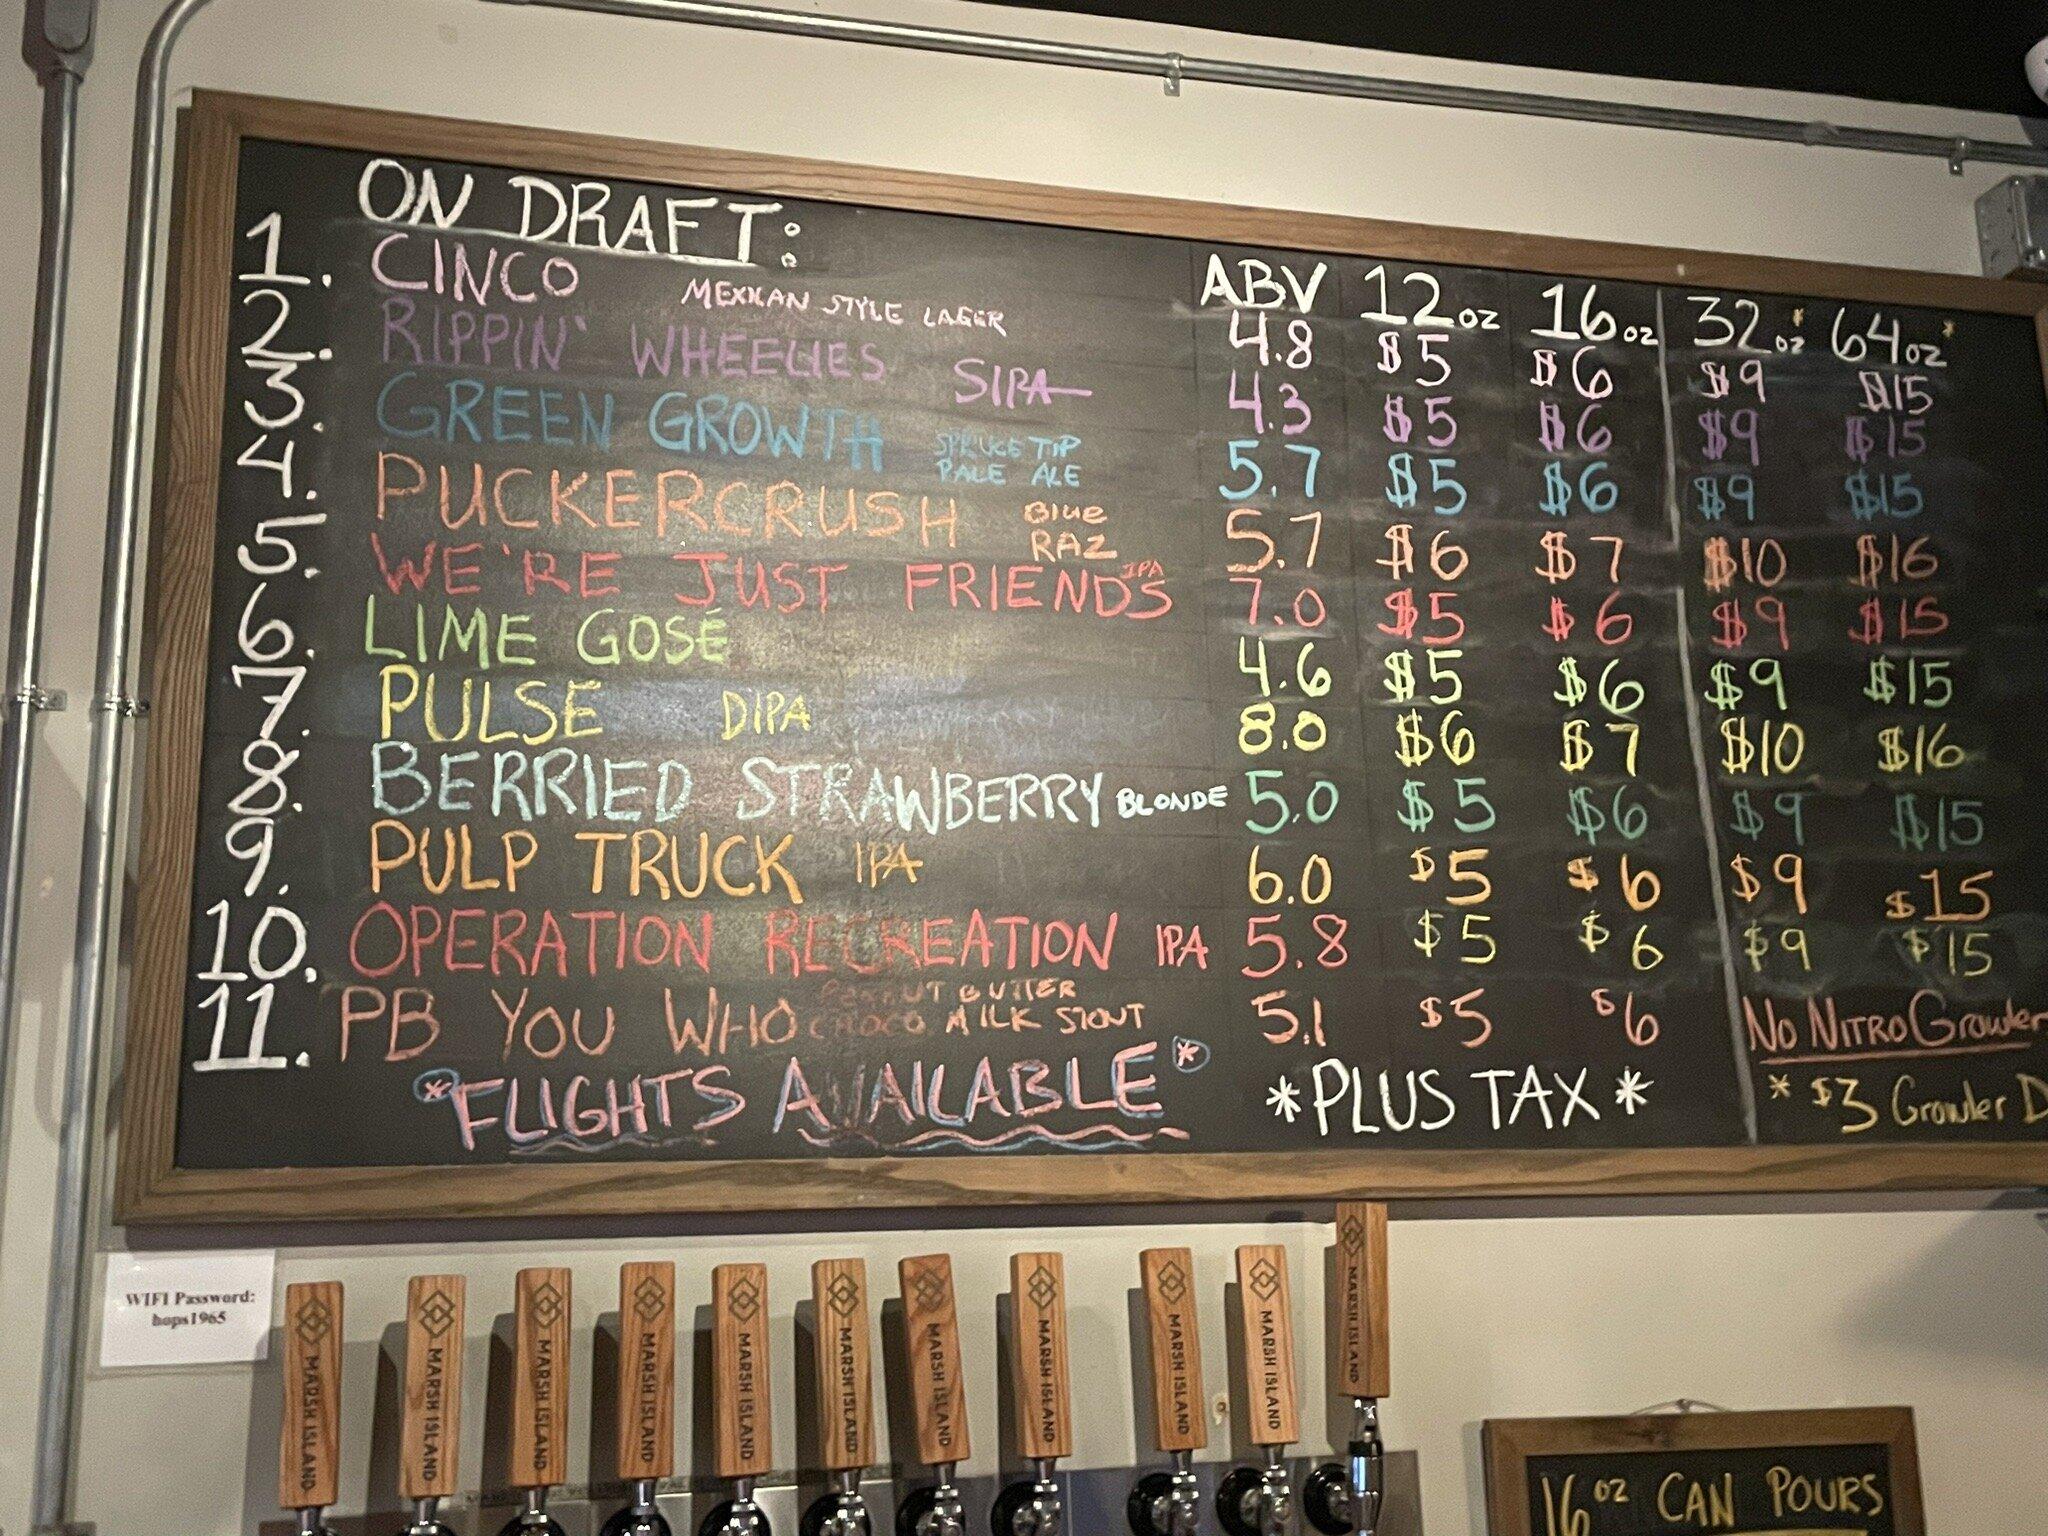 ON DRAFT:
ABV 12oz 16oz 32oz* 64oz*
1. CINCO MEXICAN STYLE LAGER 4.8 $5 $6 $9 $15
2. RIPPIN' WHEELIES SIPA 4.3 $5 $6 $9 $15
3. GREEN GROWTH SPRUCE TIP PALE ALE 5.7 $5 $6 $9 $15
4. PUCKERCRUSH BLUE RAZ 5.7 $6 $7 $10 $16
5. WE'RE JUST FRIENDS IPA 7.0 $5 $6 $9 $15
6. LIME GOSÉ 4.6 $5 $6 $9 $15
7. PULSE DIPA 8.0 $6 $7 $10 $16
8. BERRIED STRAWBERRY BLONDE 5.0 $5 $6 $9 $15
9. PULP TRUCK IPA 6.0 $5 $6 $9 $15
10. OPERATION RECREATION IPA 5.8 $5 $6 $9 $15
11. PB YOU WHO PEANUT BUTTER CHOCO MILK STOUT 5.1 $5 $6 NO NITRO Growler
*FLIGHTS AVAILABLE* *PLUS TAX* * $3 Growler D
WIFI Password:
hops1965
MARSH ISLAND
MARSH ISLAND
MARSH ISLAND
MARSH ISLAND
MARSH ISLAND
MARSH ISLAND
MARSH ISLAND
MARSH ISLAND
MARSH ISLAND
MARSH ISLAND
MARSH ISLAND
16oz CAN POURS